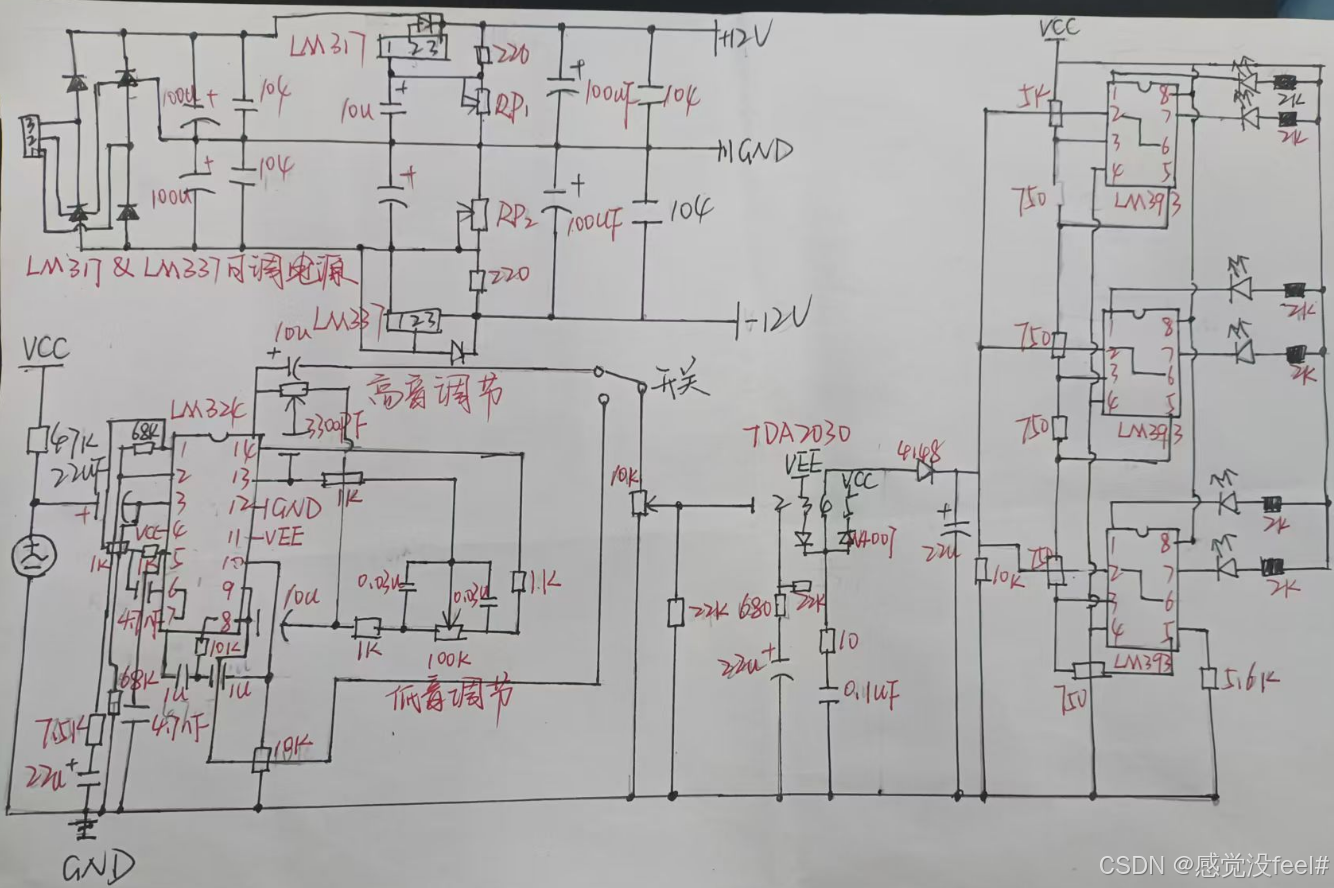 LM317
1 2 3
220
+12V
100u
+
104
10u
+
RP1
+
100uF
104
3
2
1
GND
100u
+
104
+
RP2
+
100UF
104
LM317 & LM337可调电源
220
LM337
1 2 3
-12V
VCC
10u
+
高音调节
开关
LM324
3300PF
47K
68K
22uF
+
1 14
2 13
3 12
4 11
5 10
6 9
7 8
1K
GND
VEE
VCC
1K
1K
47nF
10K
10u
0.03u
0.03u
1.1K
1K
100K
低音调节
68K
1u
1u
7.5K
47nF
10K
22u
+
GND
10K
22K
TDA2030
VEE
VCC
2 3 4 5
4148
1N4007
+
22u
680
22K
22u
+
10
0.1uF
10K
VCC
5K
1 8
2 7
3 6
4 5
LM393
2K
2K
750
750
1 8
2 7
3 6
4 5
LM393
2K
2K
750
750
1 8
2 7
3 6
4 5
LM393
2K
2K
750
5.6K
CSDN @感觉没feel#